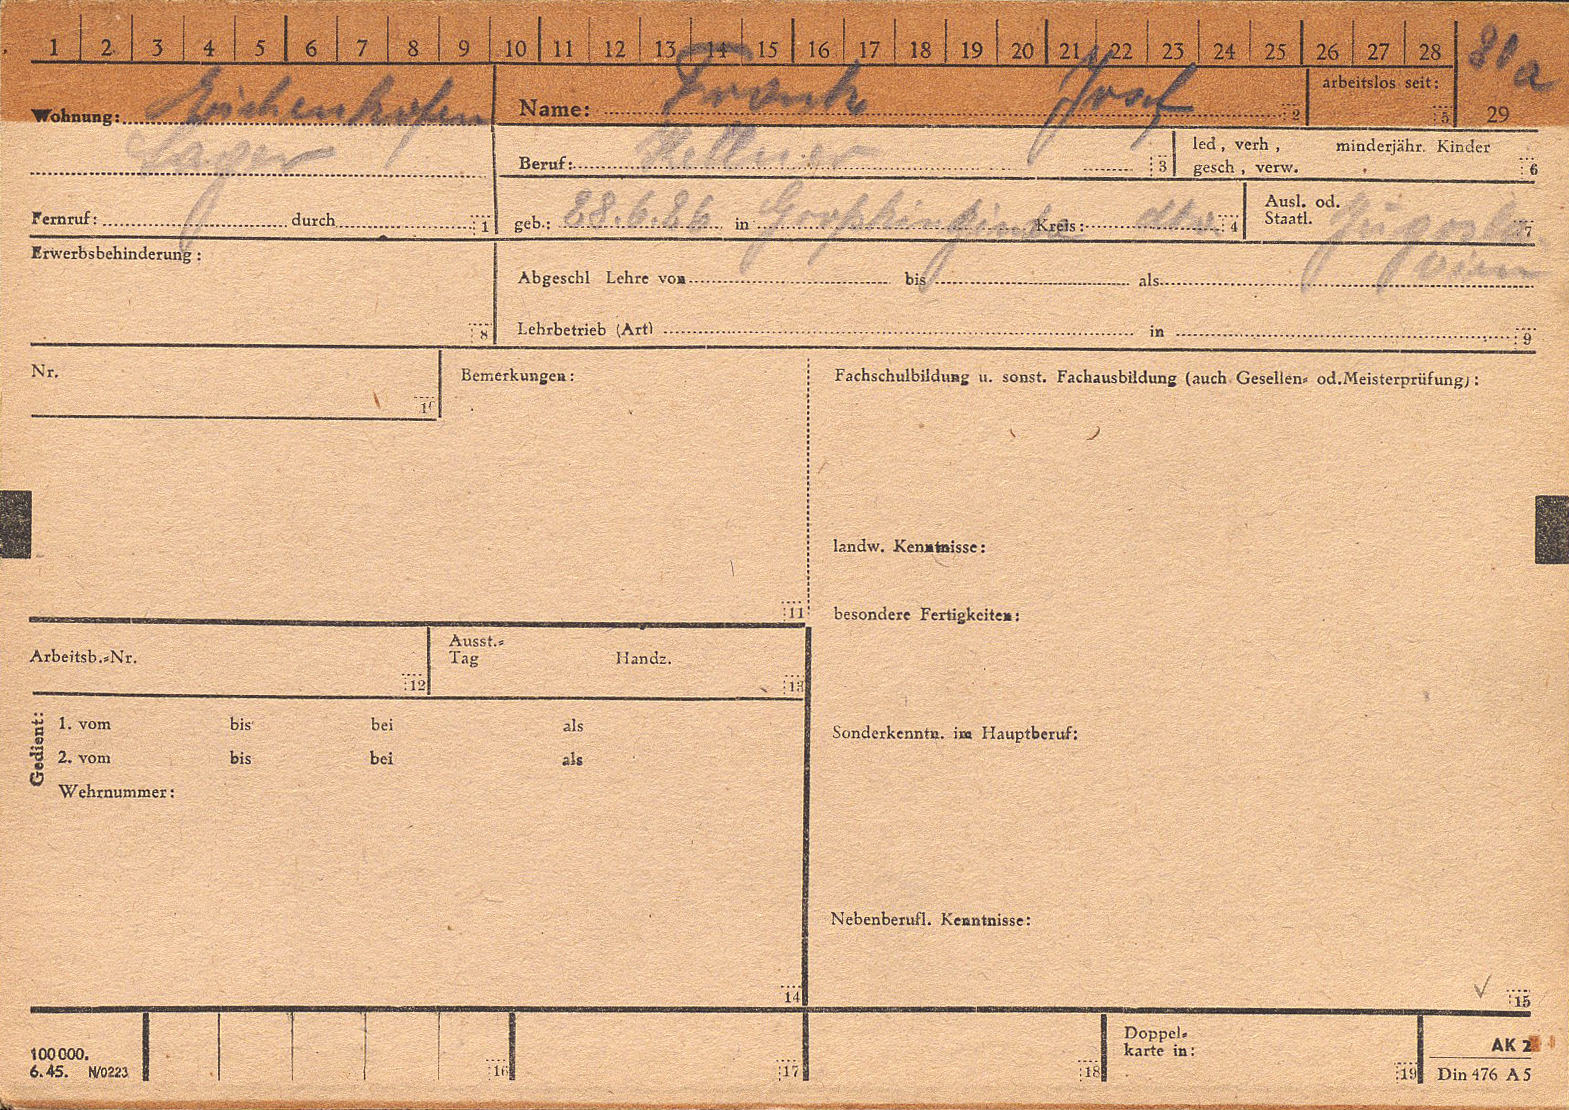 1 2 3 4 5 6 7 8 9 10 11 12 13 14 15 16 17 18 19 20 21 22 23 24 25 26 27 28
81a
Wohnung: Eichenhofen Name: Frank Josef 2 arbeitslos seit: 5 29
Lager Beruf: Kellner 3 led, verh, minderjähr. Kinder
gesch, verw. 6
Fernruf: durch 1 geb.: 28.6.26 in Großkikinda Kreis: dto. 4 Ausl. od.
Staatl. Jugosla-
vien 7
Erwerbsbehinderung: 8 Abgeschl Lehre von bis als
Lehrbetrieb (Art) in 9
Nr. 10 Bemerkungen: Fachschulbildung u. sonst. Fachausbildung (auch Gesellen- od. Meisterprüfung):
landw. Kenntnisse:
11 besondere Fertigkeiten:
Arbeitsb.-Nr. 12 Ausst.-
Tag Handz. 13
Gedient: 1. vom bis bei als
2. vom bis bei als
Sonderkenntn. im Hauptberuf:
Wehrnummer:
Nebenberufl. Kenntnisse:
14 15
100000.
6.45. N/0223 16 17 18 Doppel-
karte in: 19 AK 2
Din 476 A5